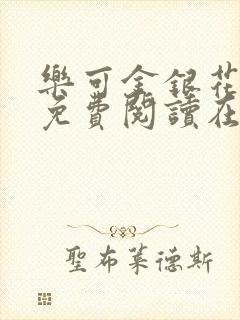 樂可金銀花
免費閱讀在
聖布萊德斯